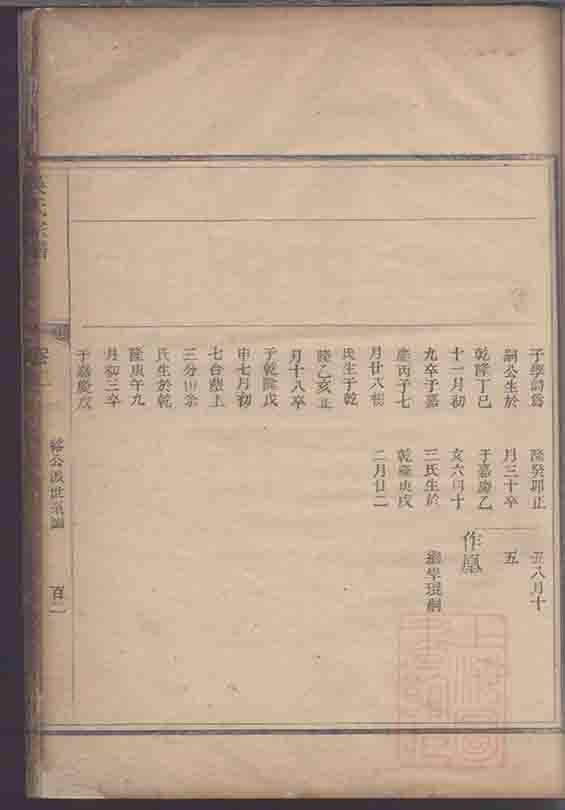 子學詩爲
嗣公生於
乾隆丁巳
十一月初
九卒于嘉
慶丙子七
月廿八初
氏生于乾
隆乙亥正
月十八卒
于乾隆戊
申七月初
七合塟上
三分山余
氏生於乾
隆庚午九
月初三卒
于嘉慶戊
隆癸卯正
月三十卒
于嘉慶乙
亥六月十
三氏生於
乾隆庚戌
二月廿二
丑八月十
五
作
繼學琨嗣
氏宗譜
裕公派世系圖